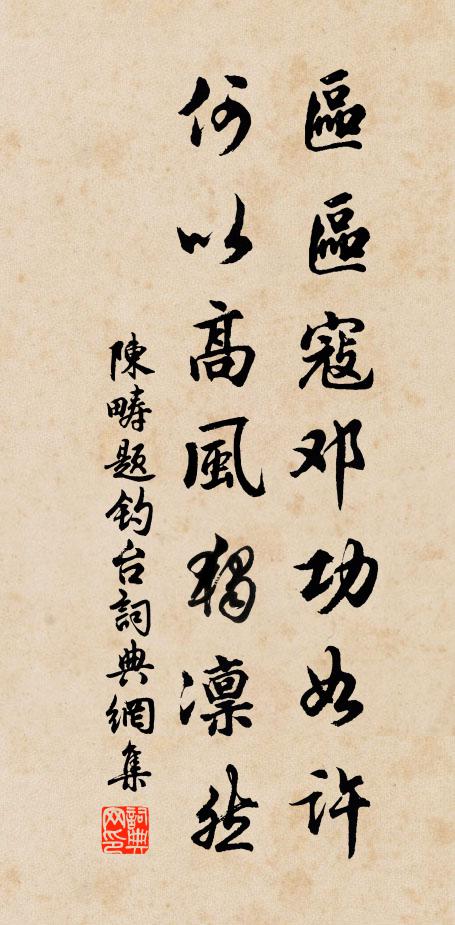 區區寇邓功如許
何以高風獨凛然
陳疇題钓台詞典網集
詞典網印